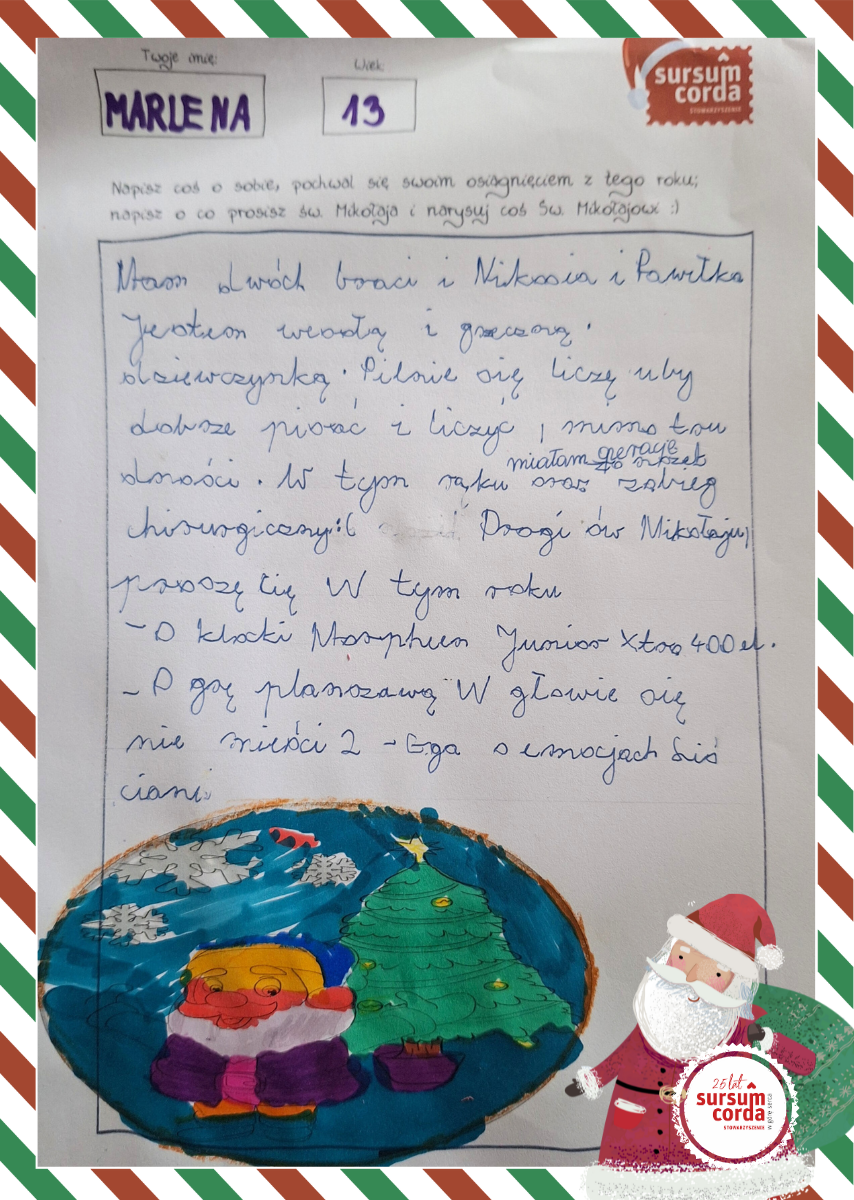 Twoje imię:
Wiek:
MARLENA
13
sursum corda
STOWARZYSZENIE
Napisz coś o sobie, pochwal się swoim osiągnięciem z tego roku;
napisz o co prosisz św. Mikołaja i narysuj coś Św. Mikołajowi :)
Mam dwóch braci i Nikosia i Pawełka
Jestem wesołą i grzeczną.
dziewczynką. Pilnie się liczę uby
dobrze pisać i liczyć, mimo tru
dności. W tym rąku oraz zabieg
miałam operację
chirurgiczny:( Drogi św Mikołaju,
proszę Cię W tym roku
- O klocki Morphun Junior Xtra 400 el.
- O grę planszawą "W głowie się
nie mieści 2 - Gga o emocjach Sió
ciani
25 lat
sursum corda
STOWARZYSZENIE
w górę serca